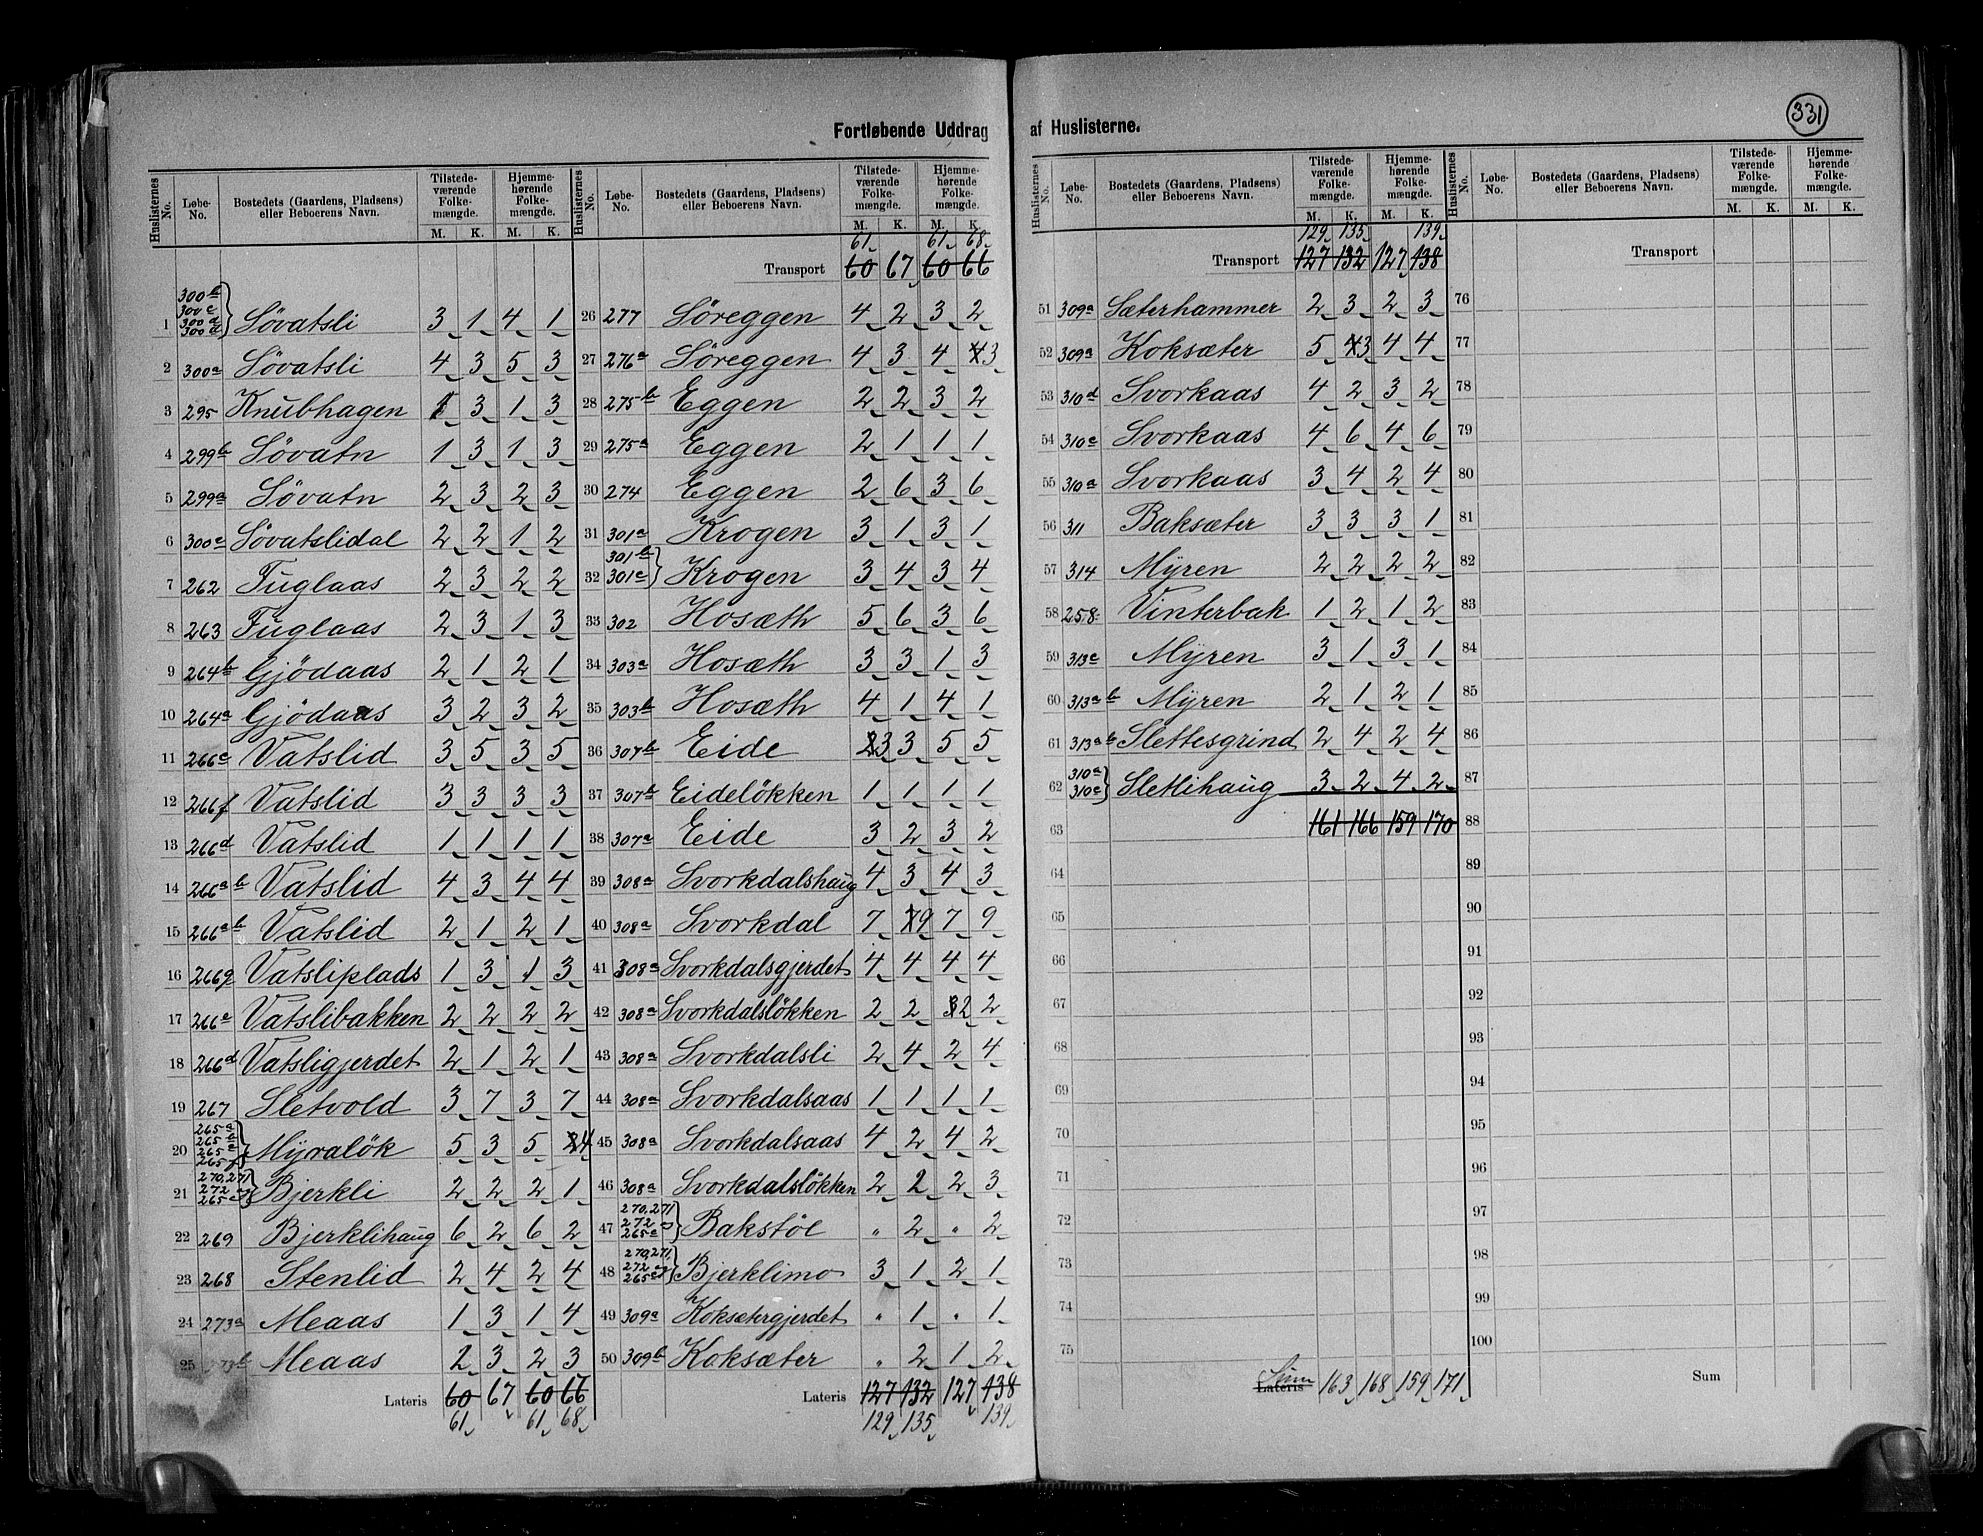 331
Fortløbende Uddrag af Huslisterne.
Huslisternes No. Løbe-No. Bostedets (Gaardens, Pladsens) eller Beboerens Navn. Tilstedeværende Folkemængde. M. K. Hjemmehørende Folkemængde. M. K.
1 300b 300c 300d 300d Søvatsli 3 1 4 1
2 300a Søvatsli 4 3 5 3
3 295 Knubhagen 1 3 1 3
4 299b Søvatn 1 3 1 3
5 299a Søvatn 2 3 2 3
6 300e Søvatslidal 2 2 1 2
7 262 Fuglaas 2 3 2 2
8 263 Fuglaas 2 3 1 3
9 264b Gjödaas 2 1 2 1
10 264a Gjödaas 3 2 3 2
11 266e Vatslid 3 5 3 5
12 266f Vatslid 3 3 3 3
13 266d Vatslid 1 1 1 1
14 266a b Vatslid 4 3 4 4
15 266a b Vatslid 2 1 2 1
16 266g Vatsliplads 1 3 1 3
17 266a Vatslibakken 2 2 2 2
18 266d Vatsligjerdet 2 1 2 1
19 267 Sletvold 3 7 3 7
20 265a 265b 265e 265f Myraløk 5 3 5 4
21 270,271 272 og 265c Bjerkli 2 2 2 1
22 269 Bjerklihaug 6 2 6 2
23 268 Stenlid 2 4 2 4
24 273a Meaas 1 3 1 4
25 273b Meaas 2 3 2 3
Lateris 60 67 60 66
61 61 68
Huslisternes No. Løbe-No. Bostedets (Gaardens, Pladsens) eller Beboerens Navn. Tilstedeværende Folkemængde. M. K. Hjemmehørende Folkemængde. M. K.
61 61 68
Transport 60 67 60 66
26 277 Søreggen 4 2 3 2
27 276a Søreggen 4 3 4 3
28 275b Eggen 2 2 3 2
29 275a Eggen 2 1 1 1
30 274 Eggen 2 6 3 6
31 301a Krogen 3 1 3 1
32 301b 301c Krogen 3 4 3 4
33 302 Hosæth 5 6 3 6
34 303a Hosæth 3 3 1 3
35 303b Hosæth 4 1 4 1
36 307b Eide 3 3 5 5
37 307b Eideløkken 1 1 1 1
38 307a Eide 3 2 3 2
39 308a Svorkdalshaug 4 3 4 3
40 308a Svorkdal 7 9 7 9
41 308a Svorkdalsgjerdet 4 4 4 4
42 308a Svorkdalsløkken 2 2 2 2
43 308a Svorkdalsli 2 4 2 4
44 308a Svorkdalsaas 1 1 1 1
45 308a Svorkdalsaas 4 2 4 2
46 308a Svorkdalsløkken 2 2 2 3
47 270,271 272 265c Bakstøl " 2 " 2
48 270,271, 272 og 265c Bjerklimo 3 1 2 1
49 309a Koksætergjerdet " 1 " 1
50 309b Koksæter " 2 1 2
Lateris 127 132 127 138
129 135 139
Huslisternes No. Løbe-No. Bostedets (Gaardens, Pladsens) eller Beboerens Navn. Tilstedeværende Folkemængde. M. K. Hjemmehørende Folkemængde. M. K.
129 135 139
Transport 127 132 127 138
51 309a Sæterhammer 2 3 2 3
52 309a Koksæter 5 3 4 4
53 310d Svorkaas 4 2 3 2
54 310c Svorkaas 4 6 4 6
55 310a Svorkaas 3 4 2 4
56 311 Baksæter 3 3 3 1
57 314 Myren 2 2 2 2
58 258 Vinterbak 1 2 1 2
59 313c Myren 3 1 3 1
60 313a b Myren 2 1 2 1
61 313a b Slettesgrind 2 4 2 4
62 310a 310e Sletlihaug 3 2 4 2
63 161 166 159 170
64
65
66
67
68
69
70
71
72
73
74
75
Lateris Sum 163 168 159 171
Huslisternes No. Løbe-No. Bostedets (Gaardens, Pladsens) eller Beboerens Navn. Tilstedeværende Folkemængde. M. K. Hjemmehørende Folkemængde. M. K.
Transport
76
77
78
79
80
81
82
83
84
85
86
87
88
89
90
91
92
93
94
95
96
97
98
99
100
Sum